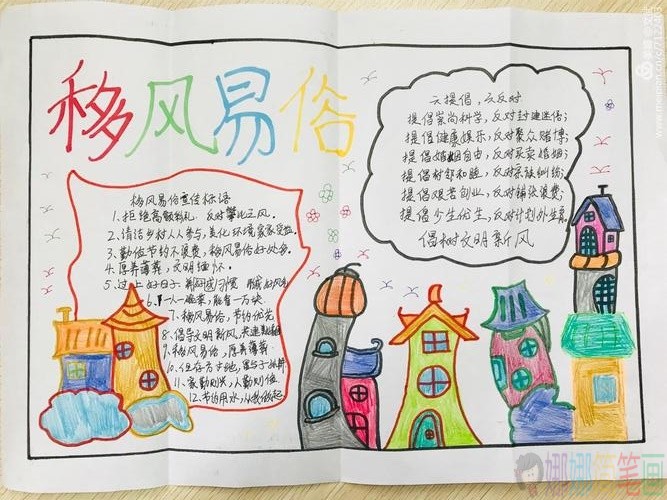 移风易俗
移风易俗宣传标语
1、拒绝高额彩礼 反对攀比之风.
2、清洁乡村人人参与,美化环境家家受益.
3、勤俭节约不浪费,移风易俗好处多.
4、厚养薄葬,文明缅怀.
5、过上好日子
6、一人一桶菜,能省一万块.
7、移风易俗,节约优先
8、倡导文明新风,共建
9、移风易俗,厚养薄葬
10、但存方寸地,留与子孙耕
11、家勤则兴,人勤则俭
12、节约用水,从我做起.
六提倡,六反对
提倡崇尚科学,反对封建迷信;
提倡健康娱乐,反对聚众赌博;
提倡婚姻自由,反对买卖婚姻;
提倡邻里和睦,反对家族纠纷;
提倡艰苦创业,反对铺张浪费;
提倡少生优生,反对计划外生育
倡树文明新风
娜娜蜡笔画